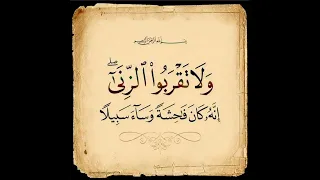 بسم الله الرحمن الرحيم
وَلَا تَقْرَبُوا۟ ٱلزِّنَىٰٓ ۖ
إِنَّهُۥ كَانَ فَـٰحِشَةً وَسَآءَ سَبِيلًا